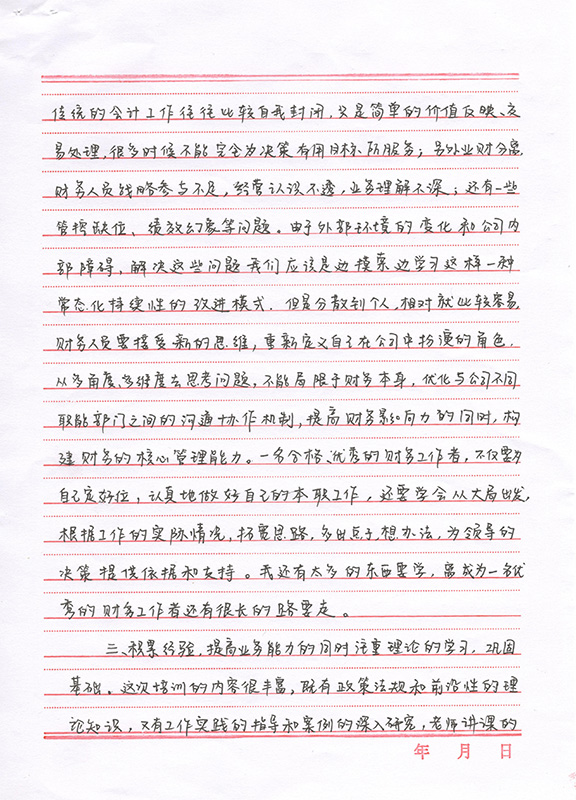 传统的会计工作往往比较自我封闭，只是简单的价值反映、交
易处理，很多时候不能完全为决策有用目标所服务；另外业财分离，
财务人员战略参与不足，经营认识不透，业务理解不深；还有一些
管控缺位、绩效幻象等问题。由于外部环境的变化和公司内
部障碍，解决这些问题我们应该是边摸索边学习这样一种
常态化持续性的改进模式．但是分散到个人，相对就比较容易，
财务人员要接受新的思维，重新定义自己在公司中扮演的角色．
从多角度、多维度去思考问题，不能局限于财务本身，优化与公司不同
职能部门之间的沟通协作机制，提高财务影响力的同时，构
建财务的核心管理能力。一名合格、优秀的财务工作者，不仅要为
自己定好位，认真地做好自己的本职工作，还要学会从大局出发，
根据工作的实际情况，拓宽思路，多出点子，想办法，为领导的
决策提供依据和支持。我还有太多的东西要学，离成为一名优
秀的财务工作者还有很长的路要走。
三、积累经验，提高业务能力的同时注重理论的学习，巩固
基础。这次培训的内容很丰富，既有政策法规和前沿性的理
论知识，又有工作实践的指导和案例的深入研究，老师讲课的
年 月 日